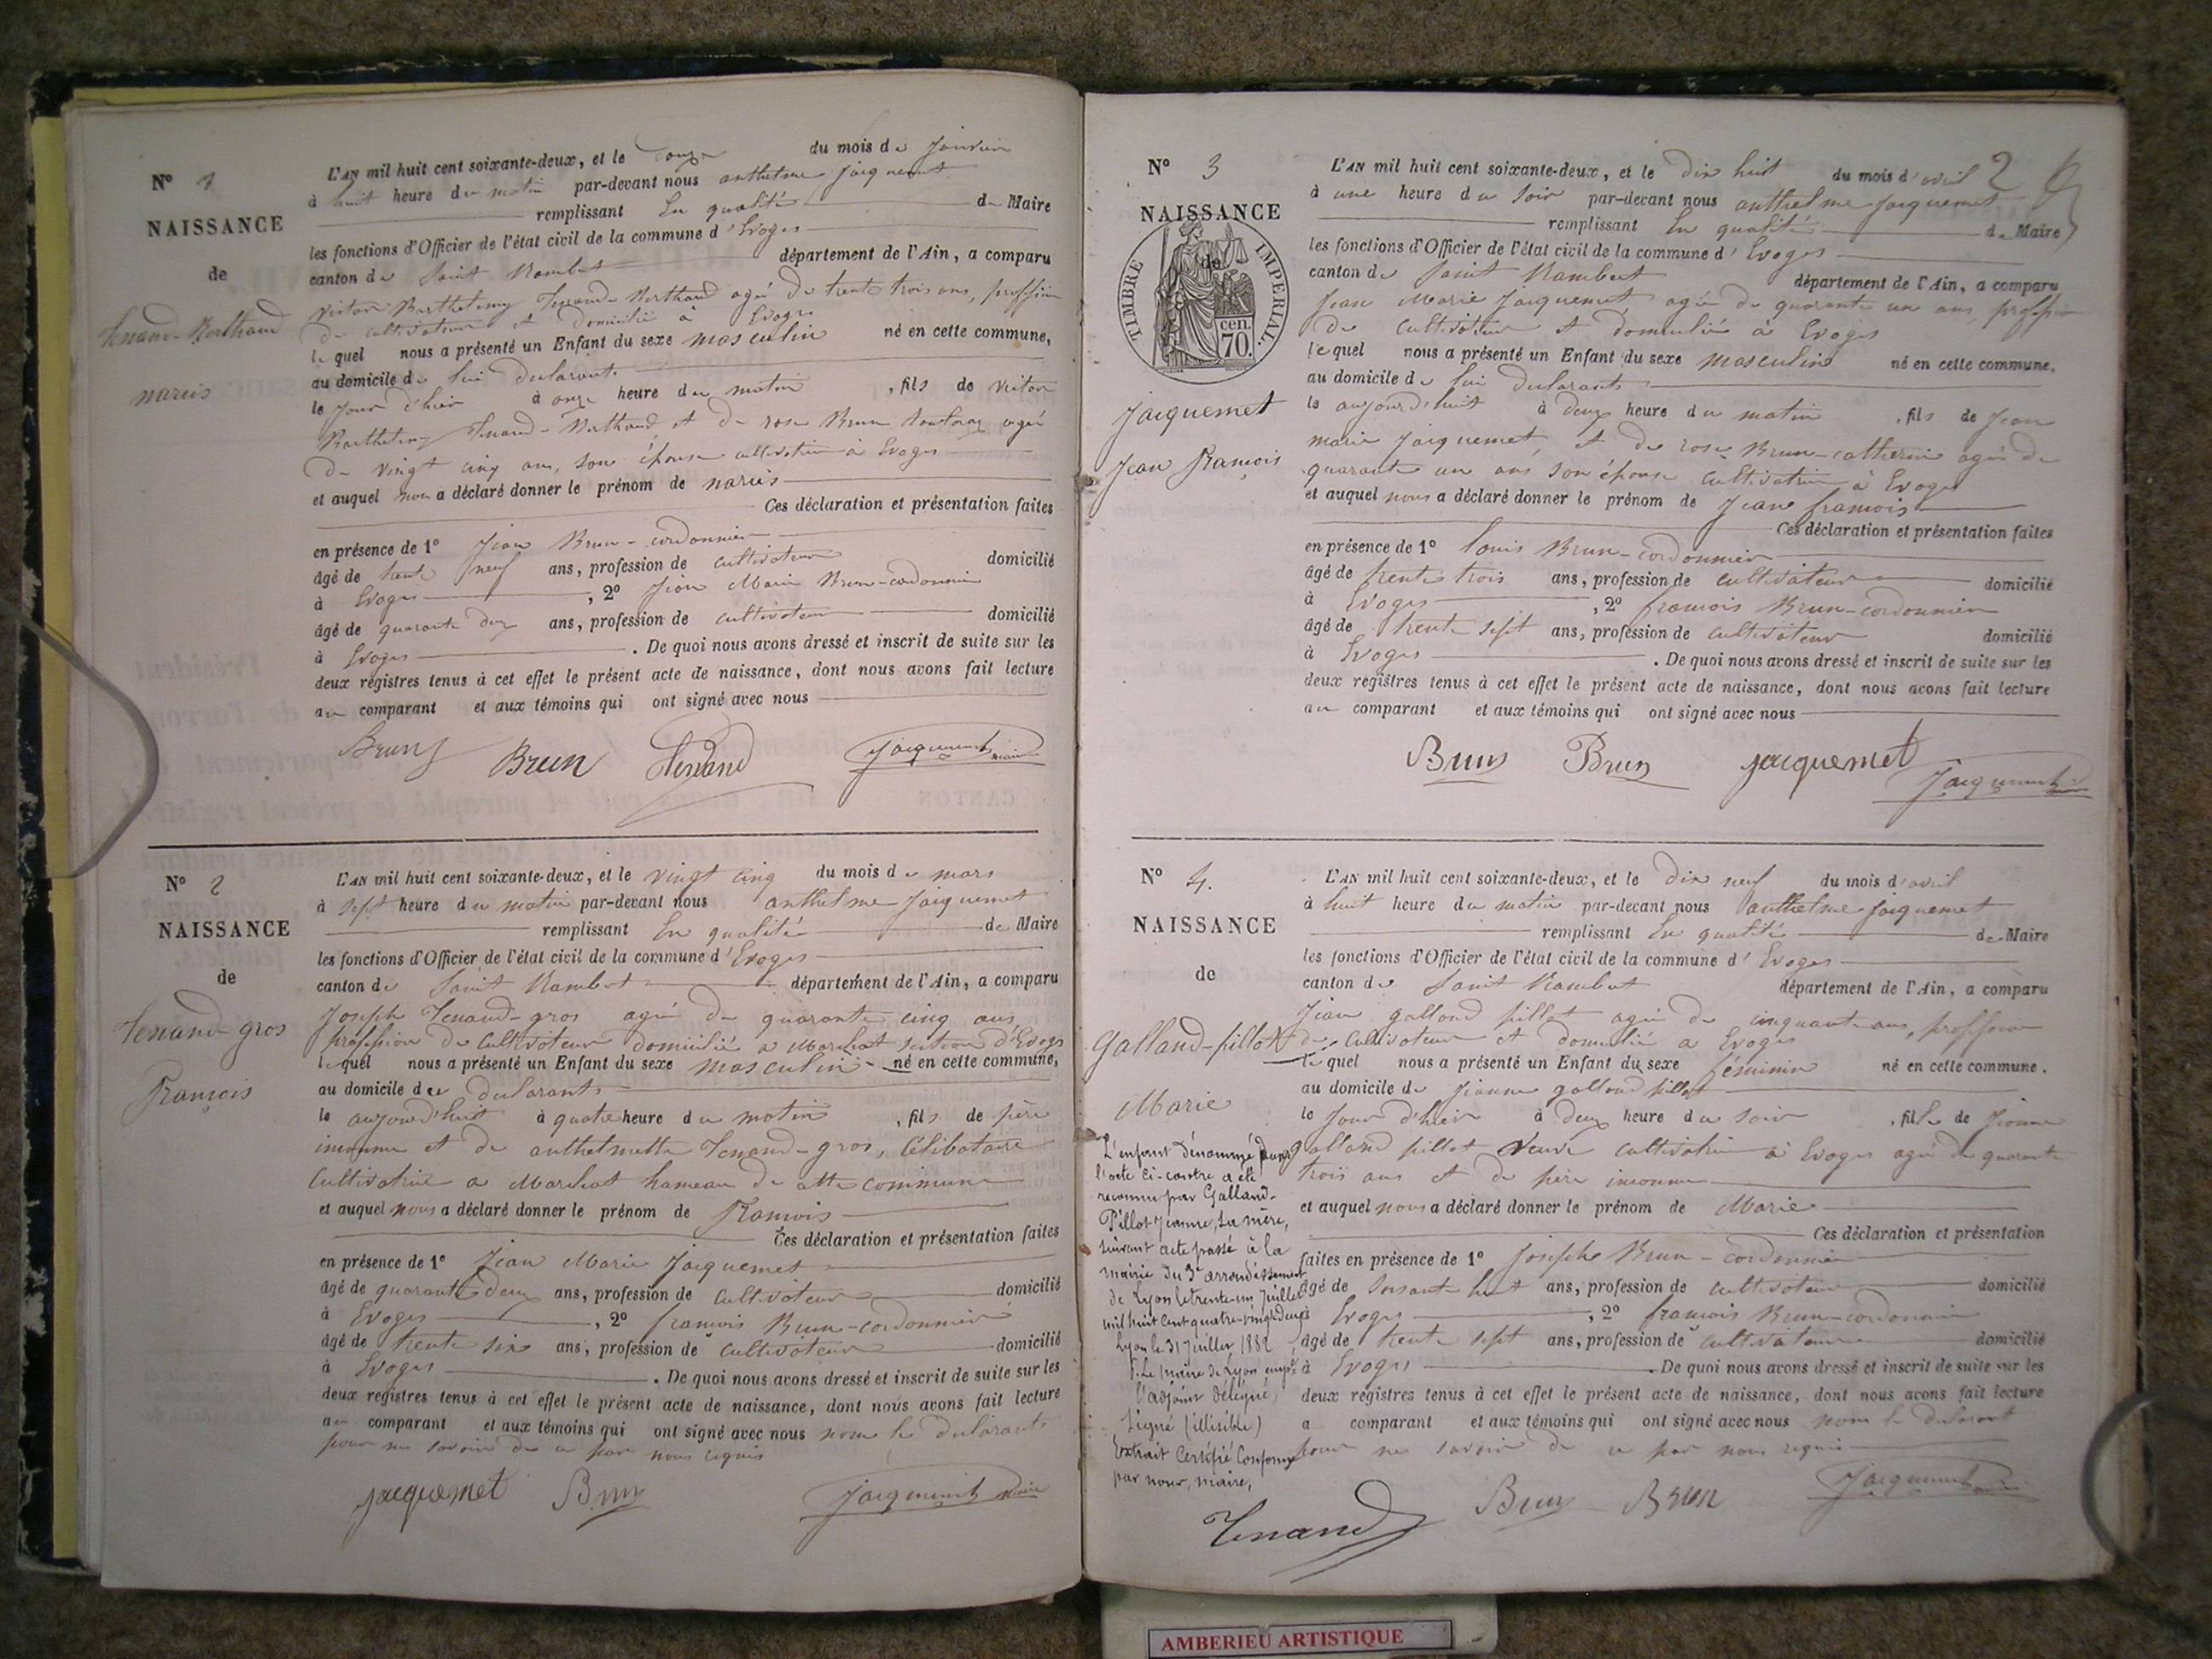 N° 1
NAISSANCE
de
Tenand-Berthaud
narcis
L'AN mil huit cent soixante-deux, et le douze du mois de Janvier
à huit heure du matin par-devant nous anthelme Jacquemet
remplissant En qualité de Maire
les fonctions d'Officier de l'état civil de la commune d'Evoges
canton de Saint Rambert département de l'Ain, a comparu
victor Barthelemy Tenand-Berthaud agé de trente trois ans, profession
de cultivateur et domicilié à Evoges
lequel nous a présenté un Enfant du sexe masculin né en cette commune,
au domicile de lui declarant
le jour d'hier à onze heure du matin, fils de victor
Barthelemy Tenand-Berthaud et de rose Brun agée
de vingt cinq ans, son épouse cultivatrice à Evoges
et auquel nous a déclaré donner le prénom de narcis
Ces déclaration et présentation faites
en présence de 1° Jean Brun-cordonnier
âgé de trente neuf ans, profession de cultivateur domicilié
à Evoges, 2° Jean Marie Brun-cordonnier
âgé de quarante deux ans, profession de cultivateur domicilié
à Evoges. De quoi nous avons dressé et inscrit de suite sur les
deux registres tenus à cet effet le présent acte de naissance, dont nous avons fait lecture
au comparant et aux témoins qui ont signé avec nous
Brun Brun Tenand Jacquemet maire
N° 2
NAISSANCE
de
Tenand-gros
François
L'AN mil huit cent soixante-deux, et le vingt cinq du mois de mars
à sept heure du matin par-devant nous anthelme Jacquemet
remplissant En qualité de Maire
les fonctions d'Officier de l'état civil de la commune d'Evoges
canton de Saint Rambert département de l'Ain, a comparu
Joseph Tenand-gros agé de quarante cinq ans
profession de cultivateur domicilié a Marchat section d'Evoges
lequel nous a présenté un Enfant du sexe masculin né en cette commune,
au domicile du declarant
le aujourd'huit à quatre heure du matin, fils de père
inconnu et de anthelmette Tenand-gros, Célibataire
Cultivatrice a Marchat hameau de cette commune
et auquel nous a déclaré donner le prénom de François
Ces déclaration et présentation faites
en présence de 1° Jean Marie Jacquemet
âgé de quarante deux ans, profession de cultivateur domicilié
à Evoges, 2° francois Brun-cordonnier
âgé de trente six ans, profession de cultivateur domicilié
à Evoges. De quoi nous avons dressé et inscrit de suite sur les
deux registres tenus à cet effet le présent acte de naissance, dont nous avons fait lecture
au comparant et aux témoins qui ont signé avec nous non le declarant
pour ne savoir de ce par nous requis
jacquemet Brun Jacquemet maire
2
N° 3
NAISSANCE
de
TIMBRE IMPERIAL
70 cen.
Jacquemet
Jean François
L'AN mil huit cent soixante-deux, et le dix huit du mois d'avril
à une heure du soir par-devant nous anthelme Jacquemet
remplissant En qualité de Maire
les fonctions d'Officier de l'état civil de la commune d'Evoges
canton de Saint Rambert département de l'Ain, a comparu
Jean Marie Jacquemet agé de quarante un ans profession
de cultivateur et domicilié a Evoges
lequel nous a présenté un Enfant du sexe masculin né en cette commune,
au domicile de lui declarants
le aujourd'huit à deux heure du matin, fils de Jean
marie Jacquemet, et de rose Brun-catherin agée de
quarante un ans, son épouse cultivatrice à Evoges
et auquel nous a déclaré donner le prénom de Jean francois
Ces déclaration et présentation faites
en présence de 1° louis Brun-cordonnier
âgé de trente trois ans, profession de cultivateur domicilié
à Evoges, 2° francois Brun-cordonnier
âgé de trente sept ans, profession de cultivateur domicilié
à Evoges. De quoi nous avons dressé et inscrit de suite sur les
deux registres tenus à cet effet le présent acte de naissance, dont nous avons fait lecture
au comparant et aux témoins qui ont signé avec nous
Brun Brun jacquemet Jacquemet
N° 4.
NAISSANCE
de
Galland-pillot
Marie
L'AN mil huit cent soixante-deux, et le dix neuf du mois d'avril
à huit heure du matin par-devant nous anthelme Jacquemet
remplissant En qualité de Maire
les fonctions d'Officier de l'état civil de la commune d'Evoges
canton de Saint Rambert département de l'Ain, a comparu
Jean galland pillot agé de cinquante ans, profession
de cultivateur et domicilié a Evoges
lequel nous a présenté un Enfant du sexe féminin né en cette commune.
au domicile de Jeanne galland pillot
le jour d'hier à deux heure du soir, fille de Jeanne
Galland pillot veuve cultivatrice à Evoges agée de quarante
trois ans et de père inconnu
et auquel nous a déclaré donner le prénom de Marie
Ces déclaration et présentation
faites en présence de 1° Joseph Brun-cordonnier
âgé de soixante huit ans, profession de cultivateur domicilié
à Evoges, 2° francois Brun-cordonnier
âgé de trente sept ans, profession de cultivateur domicilié
à Evoges. De quoi nous avons dressé et inscrit de suite sur les
deux registres tenus à cet effet le présent acte de naissance, dont nous avons fait lecture
a comparant et aux témoins qui ont signé avec nous non le declarant
pour ne savoir de ce par nous requis
Brun Brun Jacquemet
L'enfant dénommé dans
l'acte ci-contre a été
reconnu par Galland-
Pillot Jeanne, sa mère,
suivant acte passé à la
mairie du 3e arrondissement
de Lyon le trente-un Juillet
mil huit cent quatre-vingt-deux
Lyon le 31 Juillet 1882
P. Le maire de Lyon empé.
l'adjoint délégué,
Signé (illisible)
Extrait Certifié Conforme
par nous, maire,
Tenand
AMBERIEU ARTISTIQUE